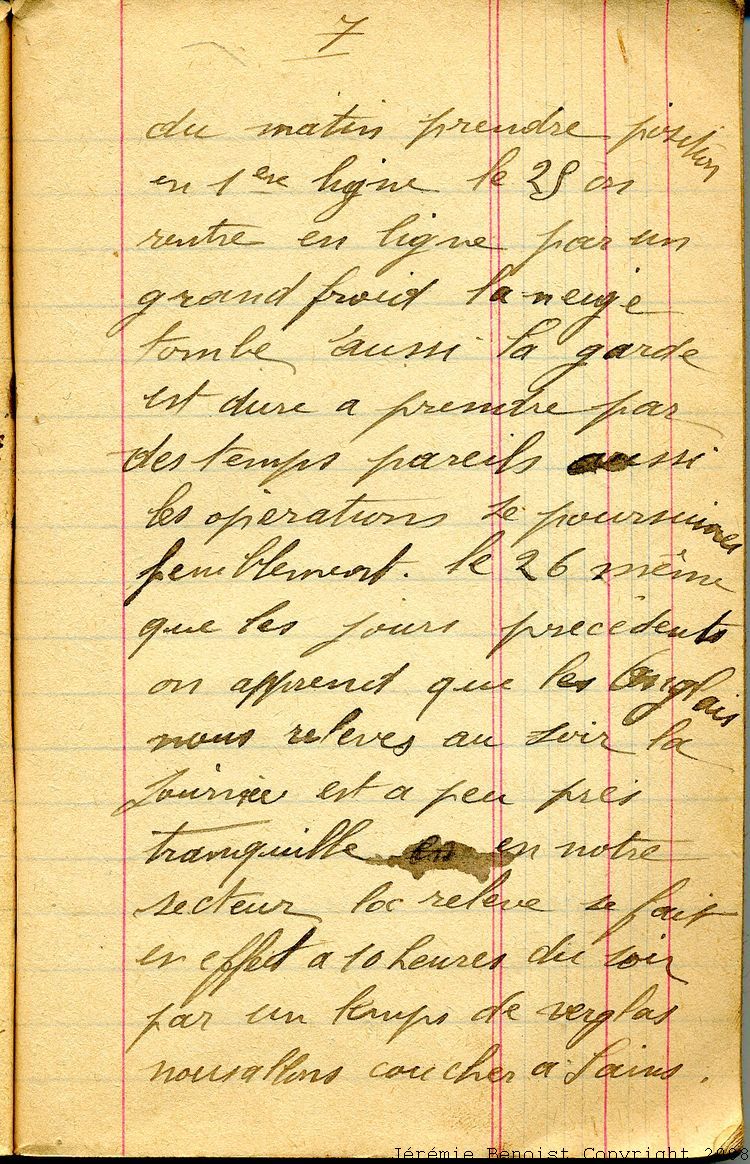 7
du matin prendre position
en 1ere ligne le 25 on
rentre en ligne par un
grand froid la neige
tombe aussi la garde
est dure a prendre par
des temps pareils aussi
les opérations se poursuives
peniblement. le 26 même
que les jours precédents
on apprend que les Anglais
nous releves au soir la
journée est a peu près
tranquille en en notre
secteur la releve se fait
en effet a 10 heures du soir
par un temps de verglas
nous allons coucher a Sains.
Jérémie Benoist Copyright 2008